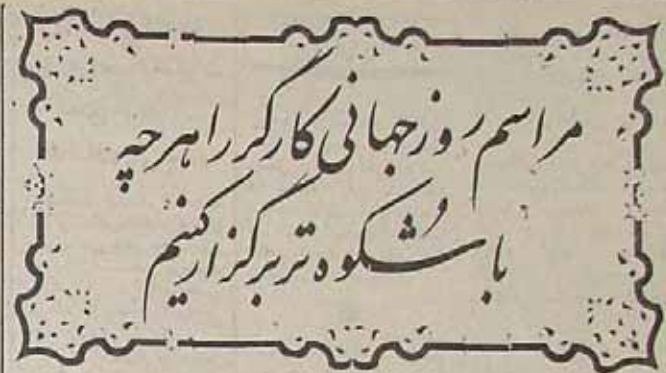 مراسم روز جهانی کارگر را هرچه
باشکوه تر برگزار کنیم